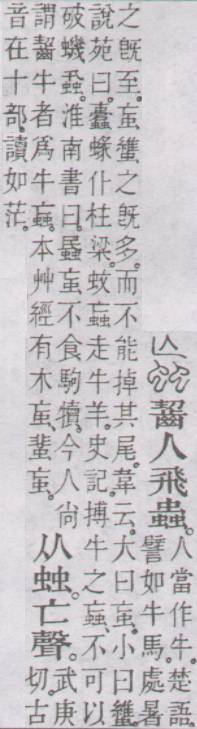 齧人飛蟲。人當作牛。楚語。
譬如牛馬處暑
之旣至。䖟䗽之旣多。而不能掉其尾。韋云。大曰䖟。小曰䗽。
說苑曰。蠹蝝仆柱梁。蚊蝱走牛羊。史記。搏牛之蝱。不可以
破蟣蝨。淮南書曰。䖟不食駒犢。今人尙
謂齧牛者爲牛蝱。本艸經有木䖟、蜚䖟。
从䖵。亡聲。武庚
切。古
音在十部。讀如茫。